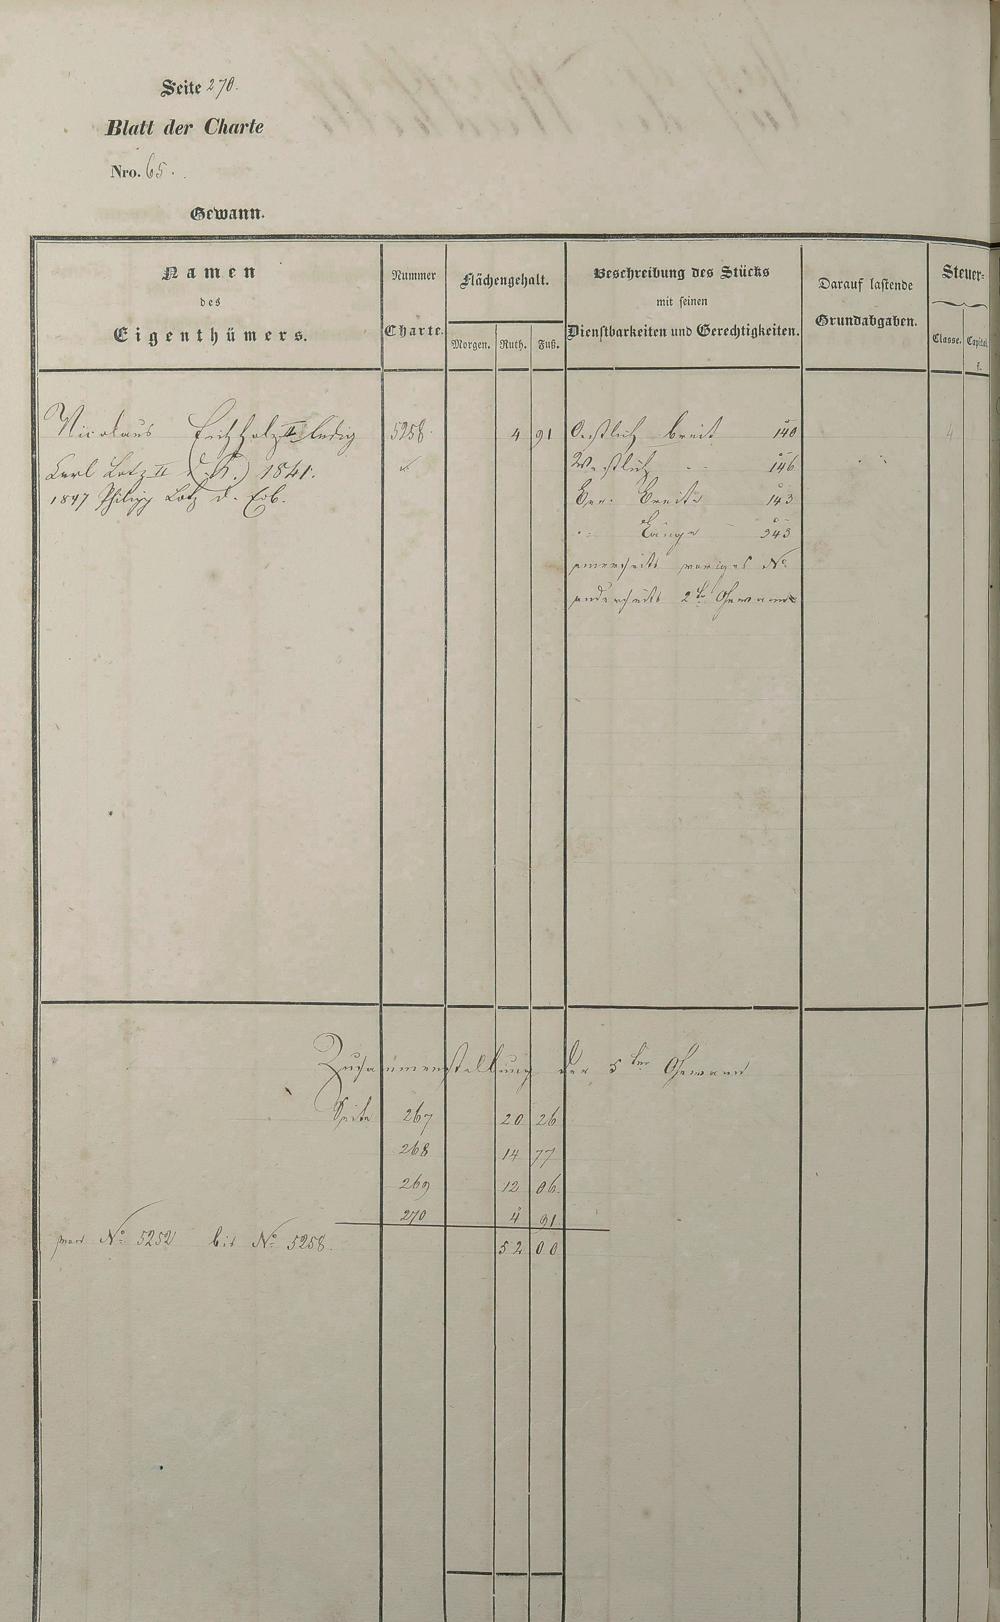 Seite 270.
Blatt der Charte
Nro. 65.
Gewann.
Namen des Eigenthümers.
Nummer Charte.
Flächengehalt.
Morgen. Ruth. Fuß.
Beschreibung des Stücks mit seinen Dienstbarkeiten und Gerechtigkeiten.
Darauf lastende Grundabgaben.
Steuer-
Classe. Capital. f.
Nicolaus II ledig 5258 4 91 Oestlich breit 140 4
Carl Lotz II 1841. Westlich " 146
1847 Philipp Lotz d. Erb. Ber. Breite 143
" Länge 343
einerseits voriges No
anderseits 2te Gewann
Zusammenstellung der 5ten Gewann
Seite 267 20 26
268 14 77
269 12 06
270 4 91
von No 5252 bis No 5258. 52 00